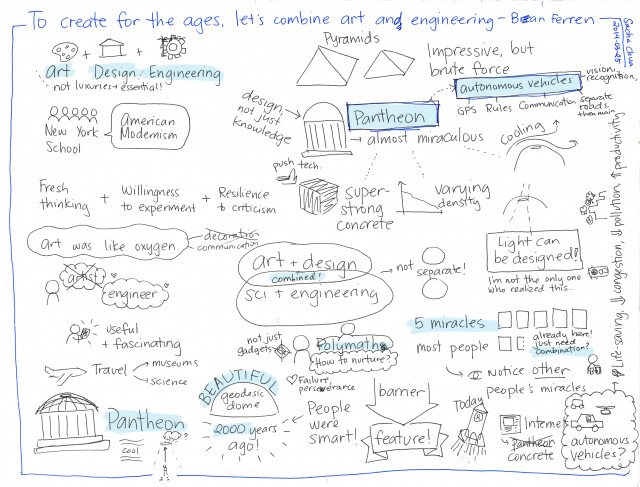 To create for the ages, let's combine art and engineering - Bran Ferren
Sacha Chua
2014-03-25
art + Design + Engineering
not luxuries → essential!
New York
School
American
Modernism
Fresh
thinking
+ Willingness
to experiment
+ Resilience
to criticism
art was like oxygen.
decoration
communication
artist
engineer
useful
+ fascinating
Travel
museums
science
Pantheon
cool
Pyramids
Impressive, but
brute force
design,
not just
knowledge
Pantheon
→ almost miraculous
autonomous vehicles
GPS Rules Communication
vision,
recognition,
separate
roads,
then main
cooling
push tech.
super-
strong
concrete
varying
density
art + design
combined!
sci + engineering
not separate!
Light can
be designed!
I'm not the only one
who realized this...
not just
gadgets
Polymaths
How to nurture?
Failure,
perseverance
5 miracles
most people
already here!
just need
combination?
Notice other
people's miracles
BEAUTIFUL
geodesic
dome
2000 years
ago!
People
were
smart!
barrier
feature!
Today
Internet
Pantheon
concrete
autonomous
vehicles?
Life-saving, ↓ congestion, ↓ pollution, ↑ productivity